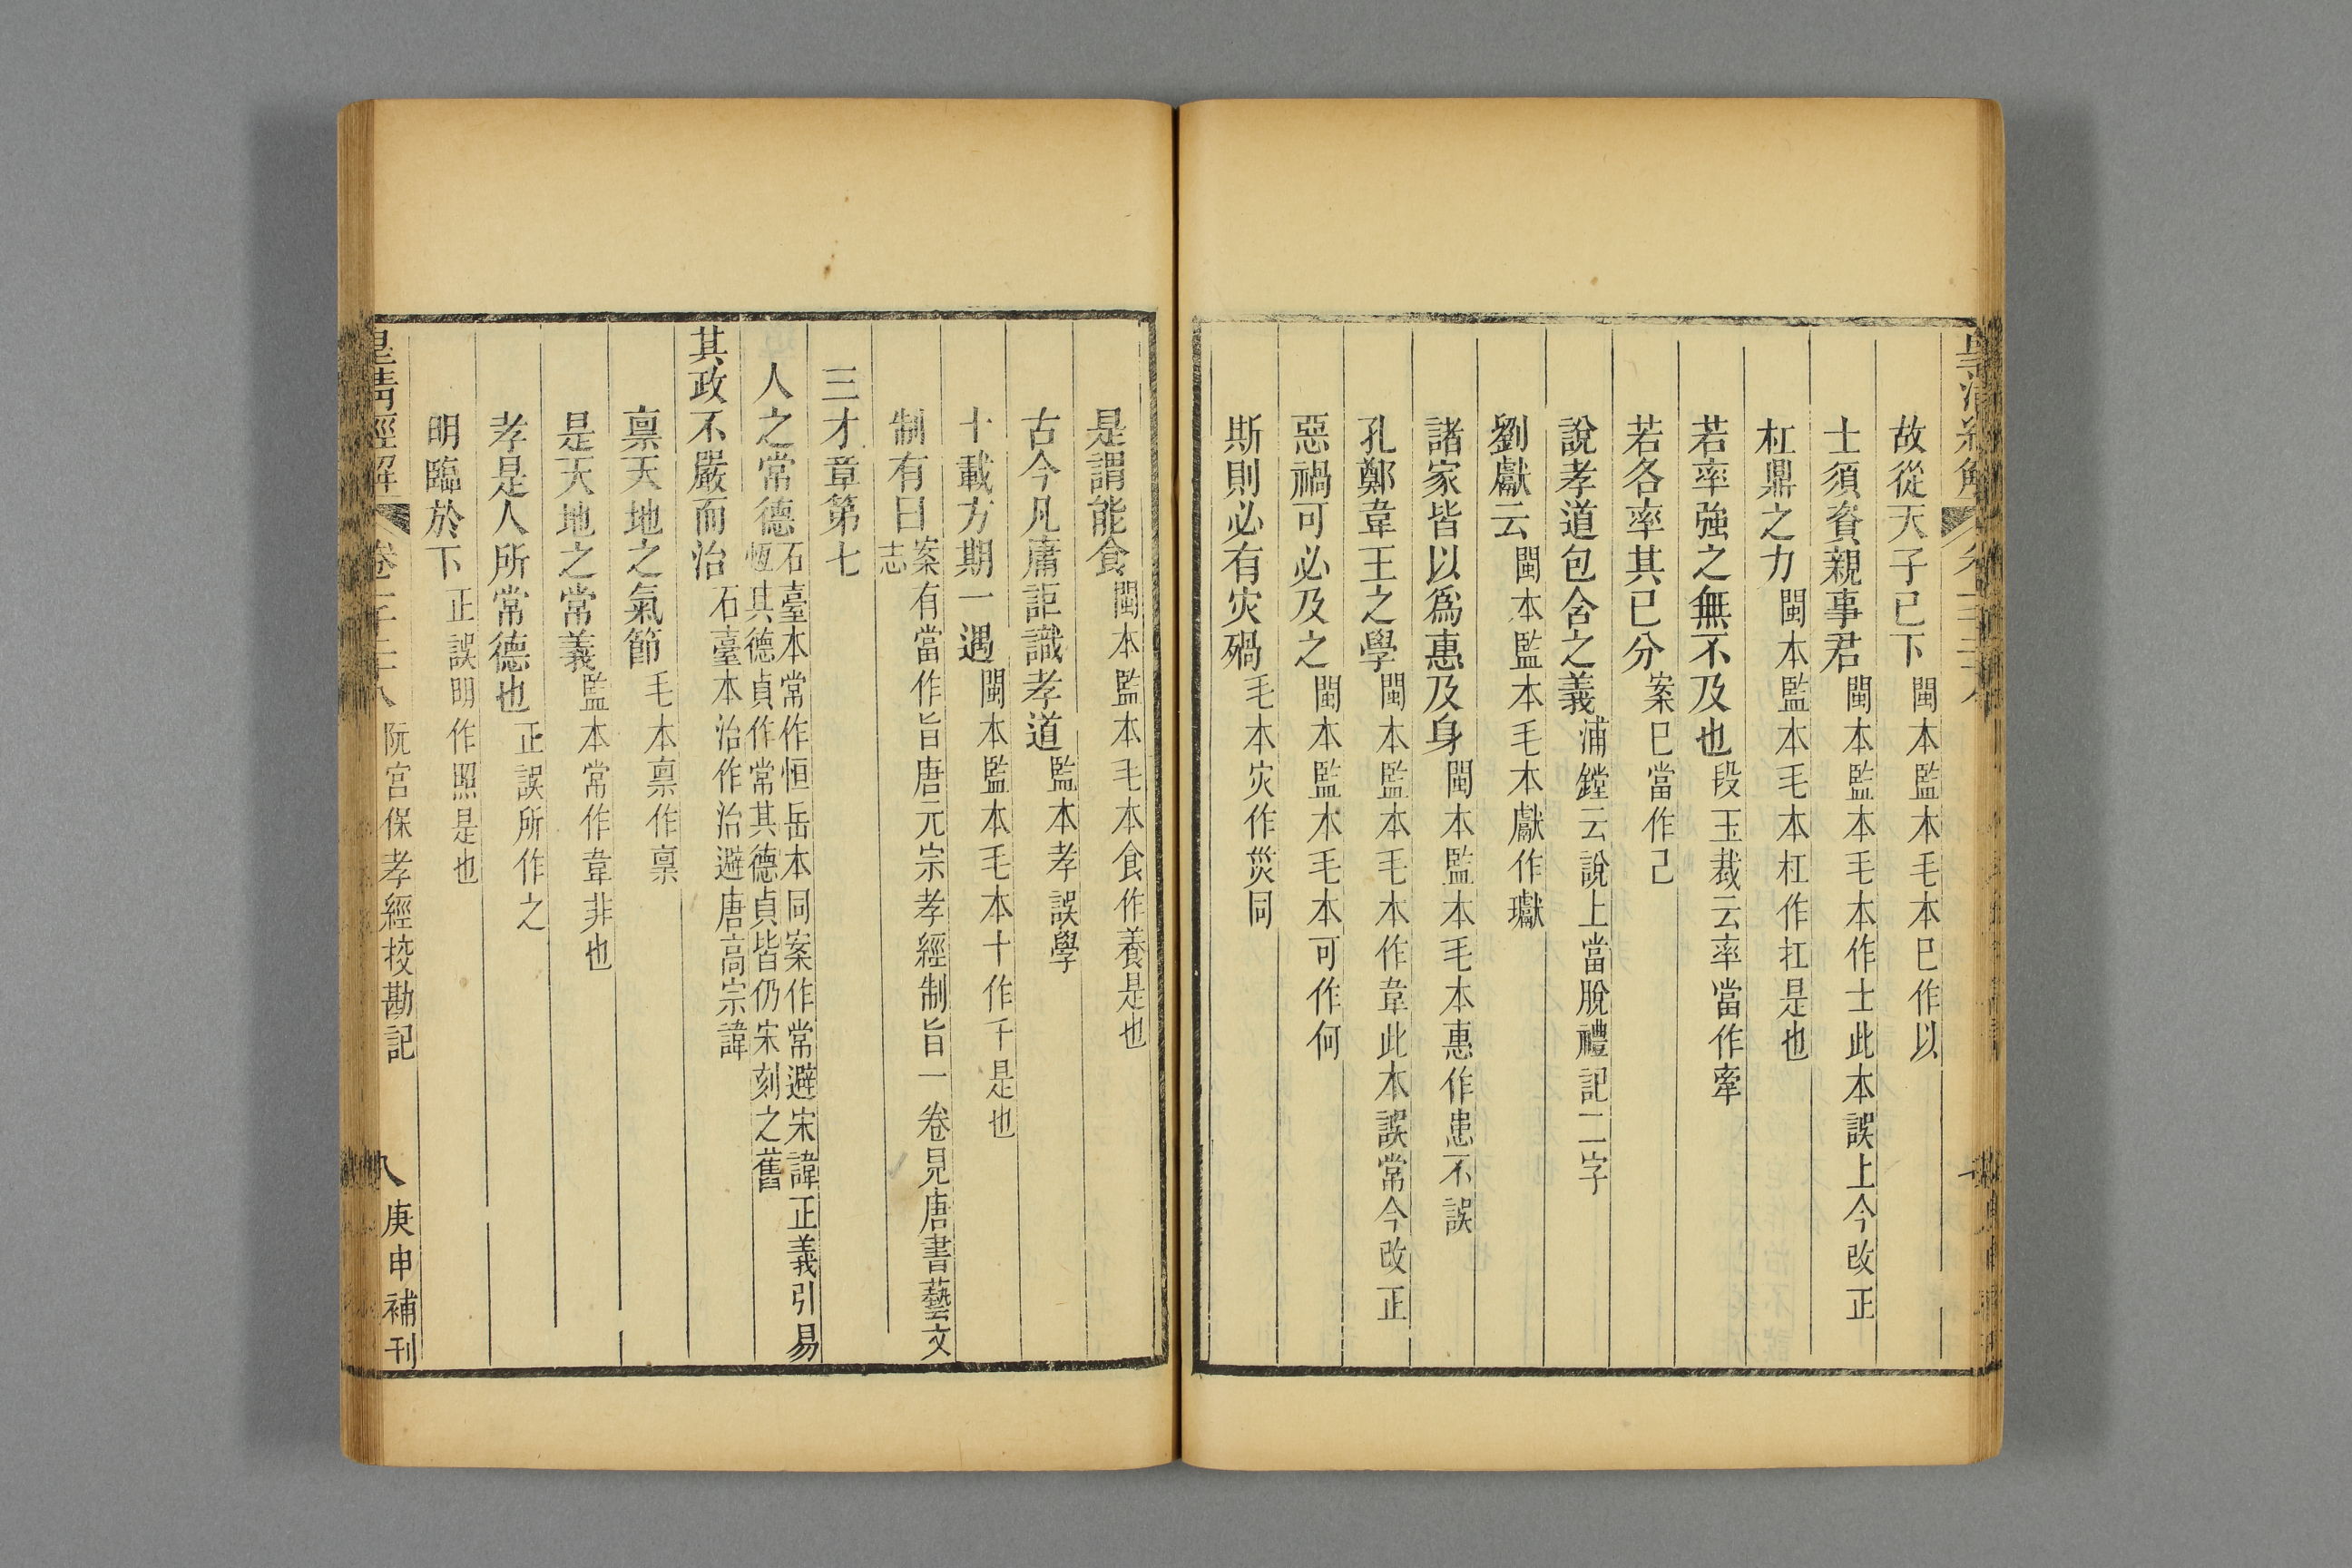 故從天子已下閩本監本毛本已作以
士須資親事君閩本監本毛本作士此本誤上今改正
杠鼎之力閩本監本毛本杠作扛是也
若率強之無不及也段玉裁云率當作牽
若各率其已分案已當作己
說孝道包含之義浦鏜云說上當脫禮記二字
劉獻云閩本監本毛本獻作瓛
諸家皆以爲惠及身閩本監本毛本惠作患不誤
孔鄭韋王之學閩本監本毛本作韋此本誤常今改正
惡禍可必及之閩本監本毛本可作何
斯則必有灾禍毛本灾作災同
是謂能食閩本監本毛本食作養是也
古今凡庸詎識孝道監本孝誤學
十載方期一遇閩本監本毛本十作千是也
制有曰案有當作旨唐元宗孝經制旨一卷見唐書藝文志
三才章第七
人之常德石臺本常作恒岳本同案作常避宋諱正義引易恆其德貞作常其德貞皆仍宋刻之舊
其政不嚴而治石臺本治作治避唐高宗諱
稟天地之氣節毛本稟作禀
是天地之常義監本常作韋非也
孝是人所常德也正誤所作之
明臨於下正誤明作照是也
皇清經解 卷一千二十八 阮宮保孝經挍勘記 八 庚申補刊